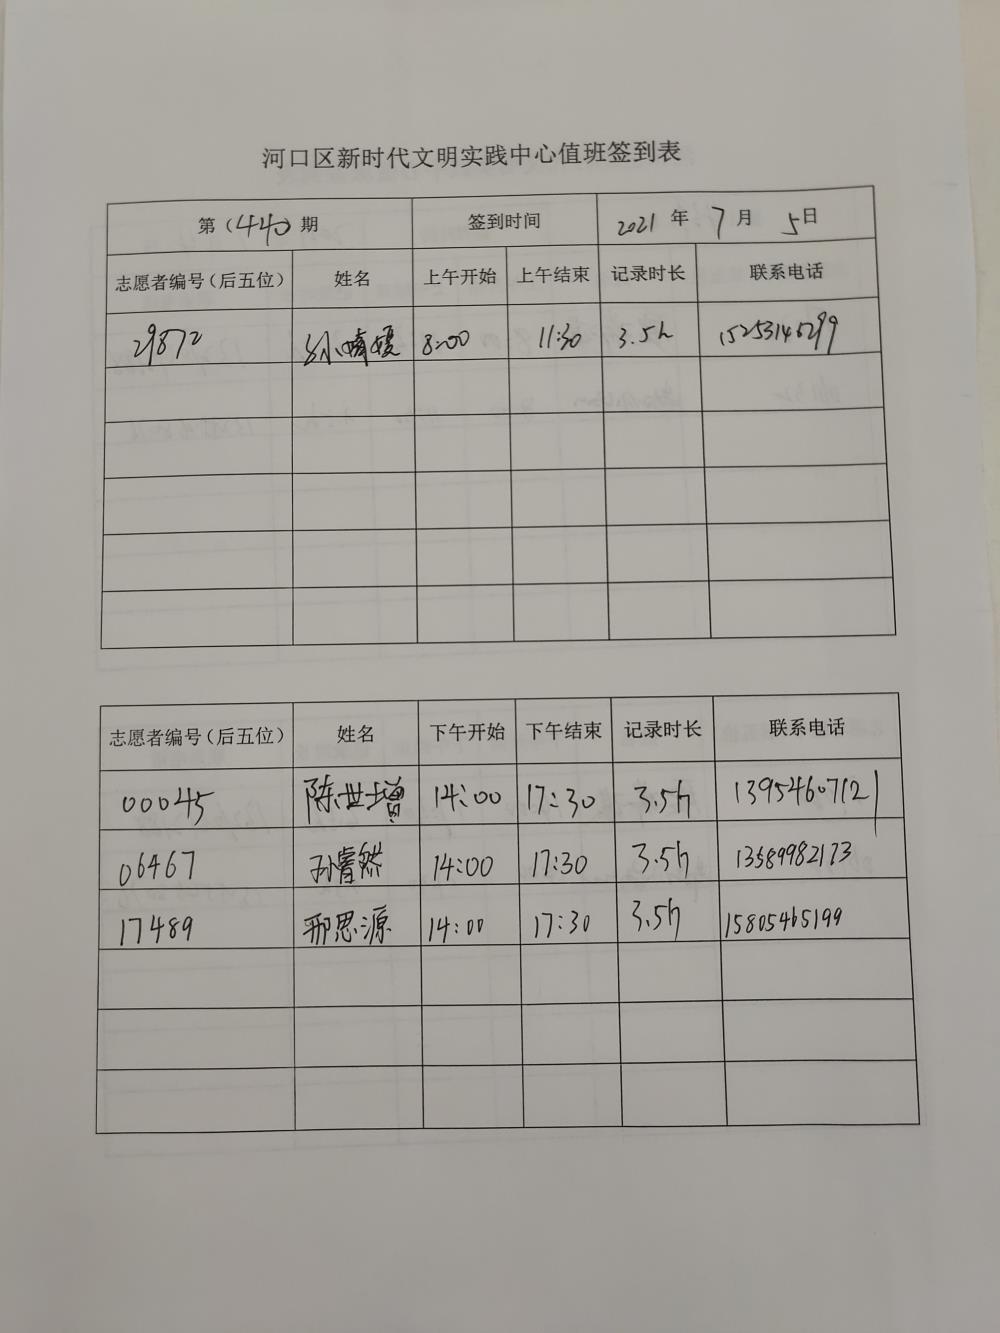 河口区新时代文明实践中心值班签到表
第（440）期 签到时间 2021 年 7 月 5日
志愿者编号（后五位） 姓名 上午开始 上午结束 记录时长 联系电话
29872 8:00 11:30 3.5h
志愿者编号（后五位） 姓名 下午开始 下午结束 记录时长 联系电话
00045 陈世增 14:00 17:30 3.5h 13954607121
06467 孙睿然 14:00 17:30 3.5h 13589982173
17489 邢思源 14:00 17:30 3.5h 15805465199